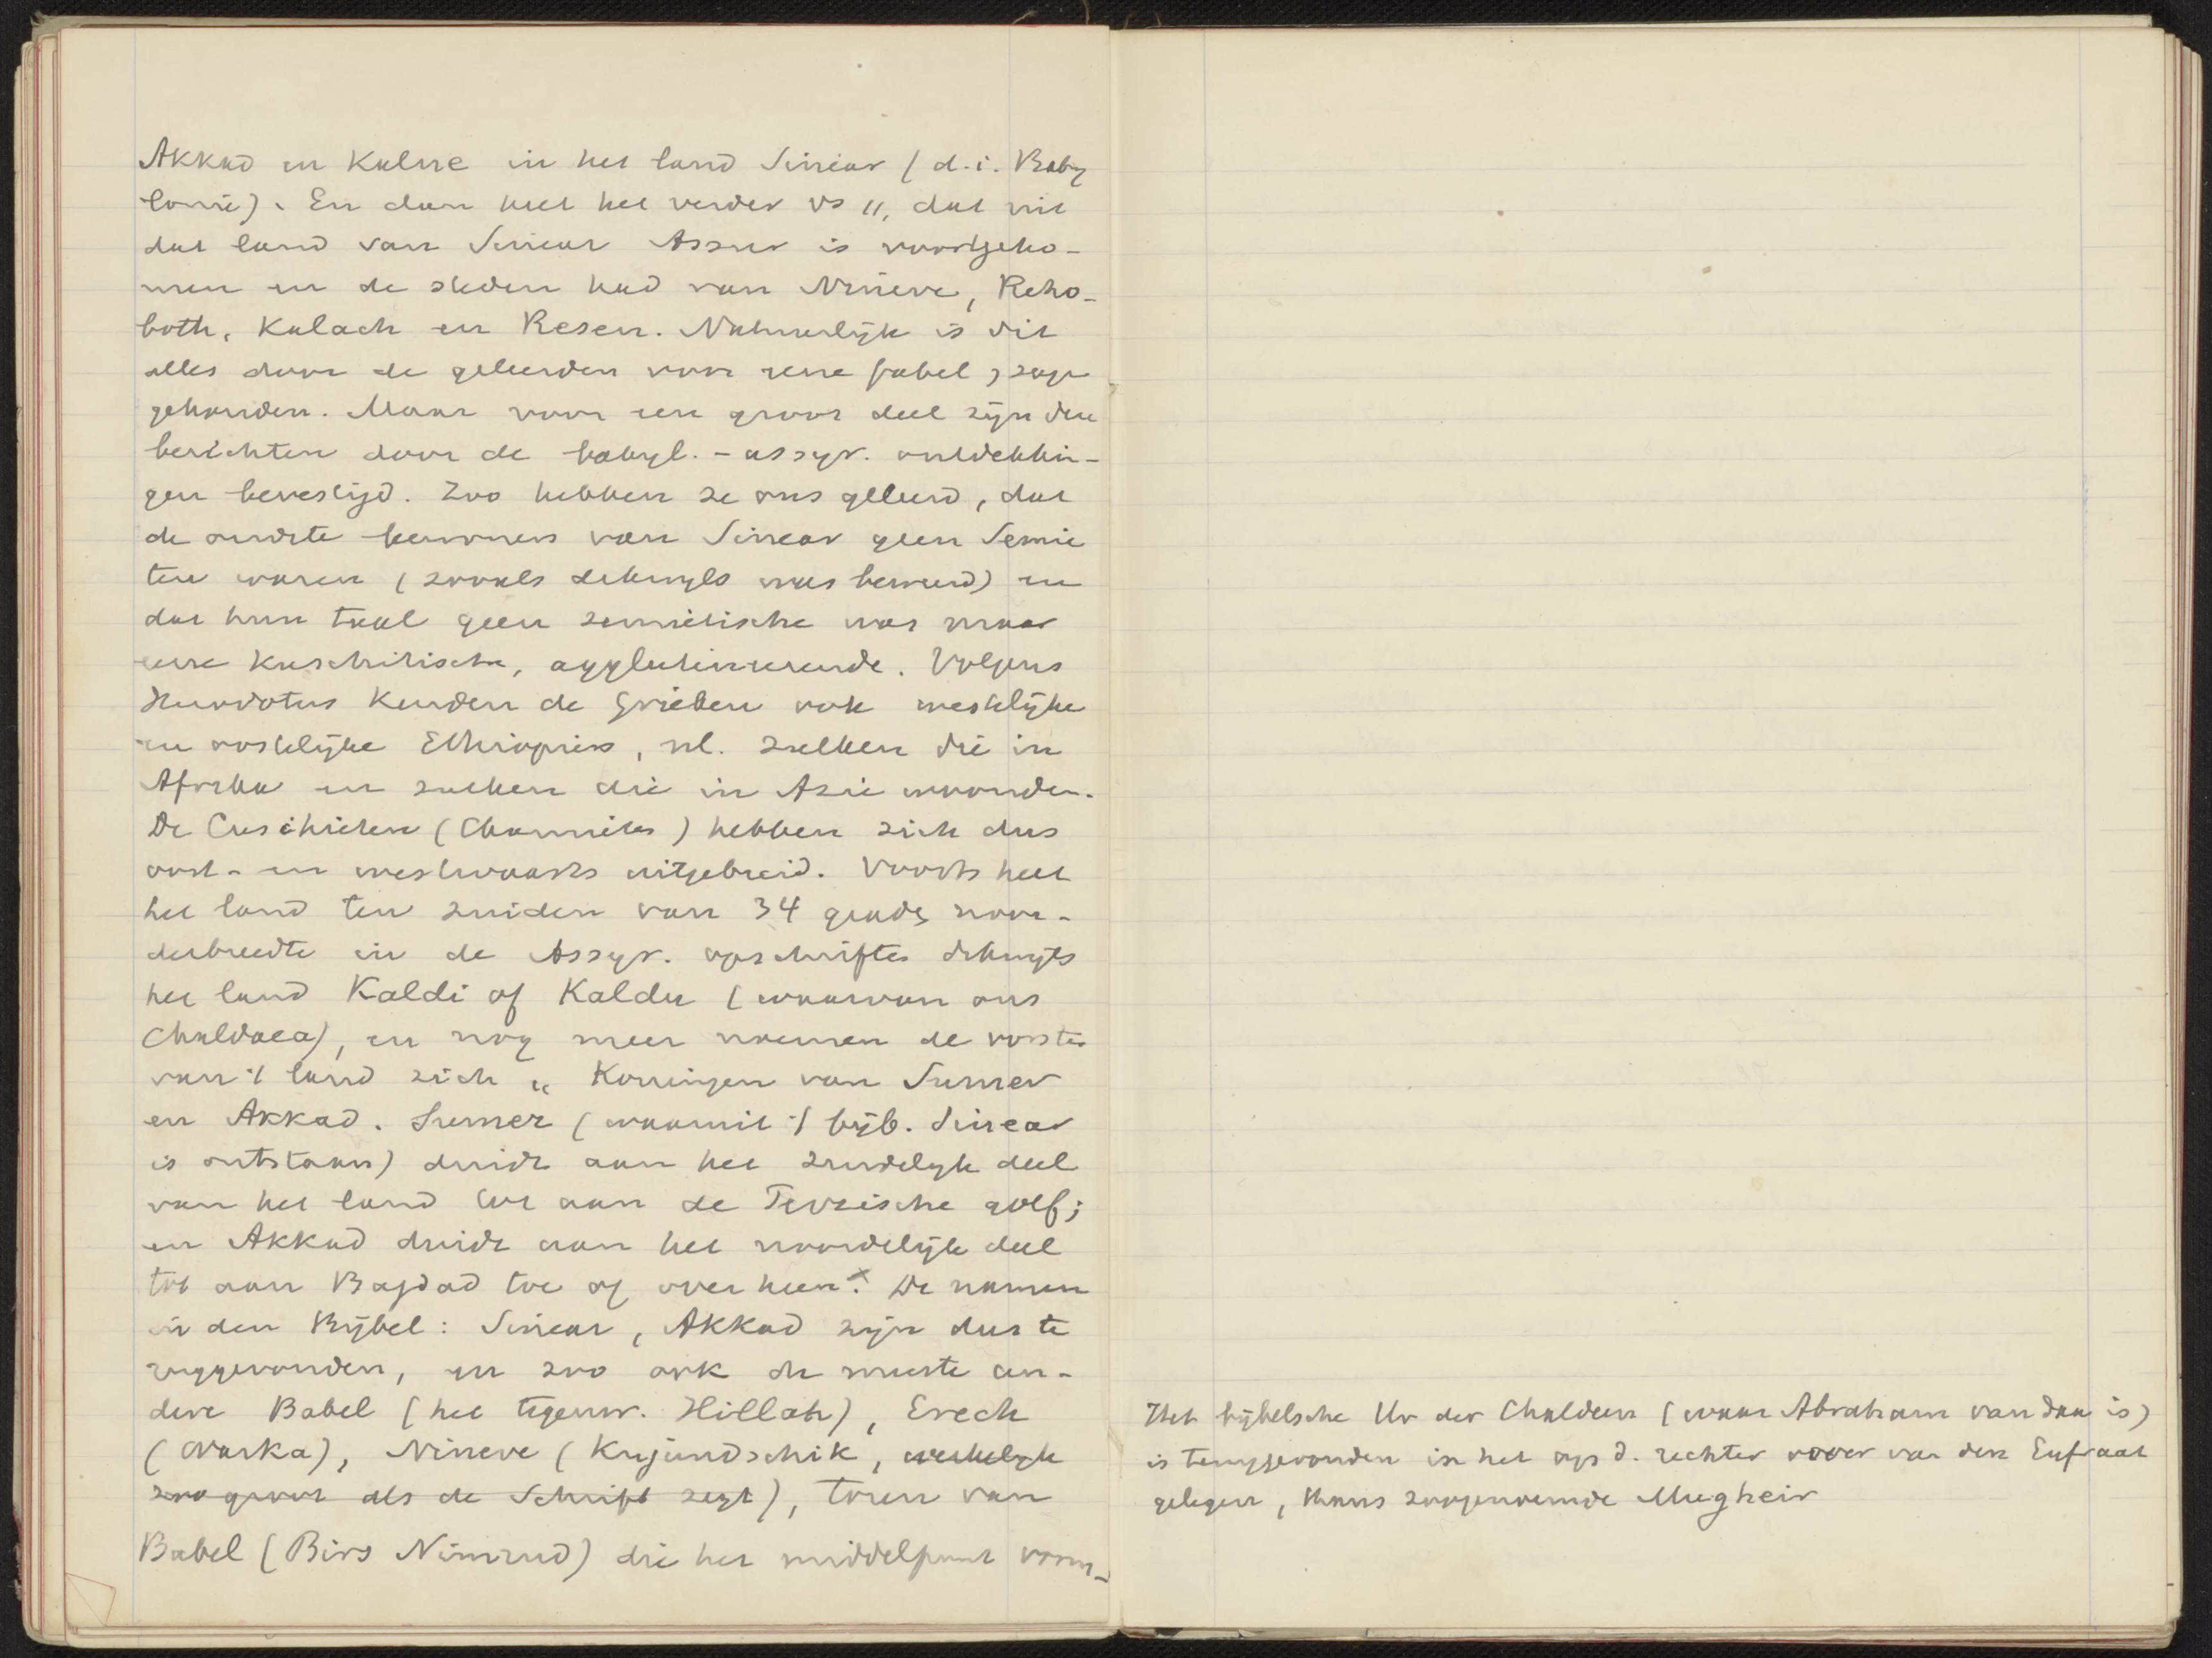 Akkad en Kalne in het land Sinear (d.i. Baby
lonië). En dan heet het verder vs 11, dat uit
dat land van Sinear Assur is voortgeko-
men en de steden had van Nineve, Reho-
both, Kalach en Resen. Natuurlijk is dit
alles door de geleerden voor eene fabel, sage
gehouden. Maar voor een groot deel zijn die
berichten door de babyl.-assyr. ontdekkin-
gen bevestigd. Zoo hebben ze ons geleerd, dat
de oudste bewoners van Sinear geen Semie
ten waren (zooals dikwijls was beweerd) en
dat hun taal geen semietische was maar
eene Kuschitische, agglutineerende. Volgens
Herodotus kenden de Grieken ook westelijke
en oostelijke Ethiopiërs, nl. zulken die in
Afrika en zulken die in Azië woonden.
De Cuschieten (Chamieten) hebben zich dus
oost- en westwaarts uitgebreid. Voorts heet
het land ten zuiden van 34 graden noor-
derbreedte in de Assyr. opschriften dikwijls
het land Kaldi of Kaldu (waarvan ons
Chaldaea), en nog meer noemen de vorsten
van 't land zich „Koningen van Sumer
en Akkad. Sumer (waaruit 't bijb. Sinear
is ontstaan) duidt aan het zuidelijk deel
van het land tot aan de Perzische golf;
en Akkad duidt aan het noordelijk deel
tot aan Bagdad toe of over heen.x De namen
in den Bijbel: Sinear, Akkad zijn dus te
ruggevonden, en zoo ook de meeste an-
dere Babel (het tegenw. Hillah), Erech
(Warka), Nineve (Kujundschik, werkelijk
zoo groot als de Schrift zegt), toren van
Babel (Birs Nimrud) die het middelpunt vorm-
Het bijbelsche Ur der Chaldeen (waar Abraham van daan is)
is teruggevonden in het op d. rechter oever van den Eufraat
gelegen, thans zoogenoemde Mugheir